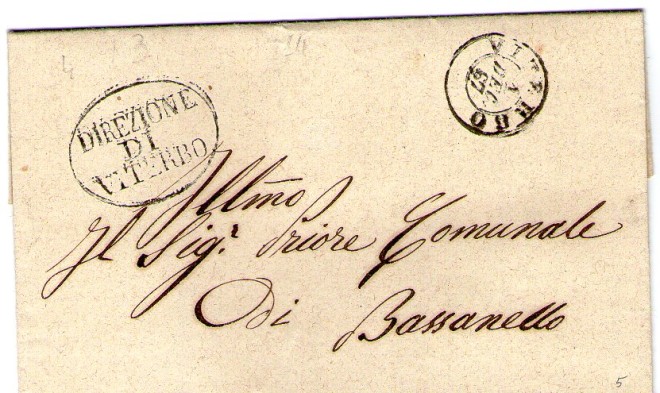 3 714
4
DIREZIONE
DI
VITERBO
VITERBO
DEC
57
Illmo
Il Sig.r Priore Comunale
Di Bassanello
5